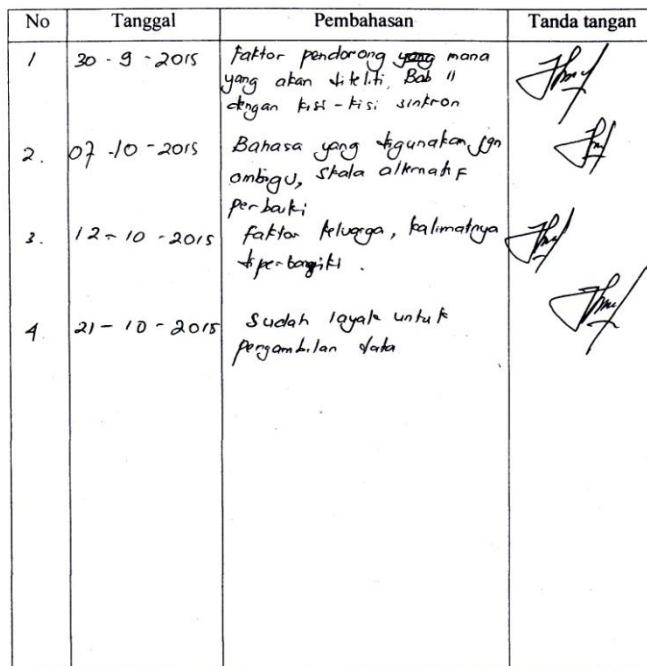 No Tanggal Pembahasan Tanda tangan
1 30 - 9 - 2015 Faktor pendorong yang mana
yang akan diteliti, Bab II
dengan kisi-kisi sinkron
2. 07 - 10 - 2015 Bahasa yang digunakan jgn
ambigu, skala alternatif
perbaiki
3. 12 - 10 - 2015 faktor keluarga, kalimatnya
diperbaiki.
4. 21 - 10 - 2015 Sudah layak untuk
pengambilan data